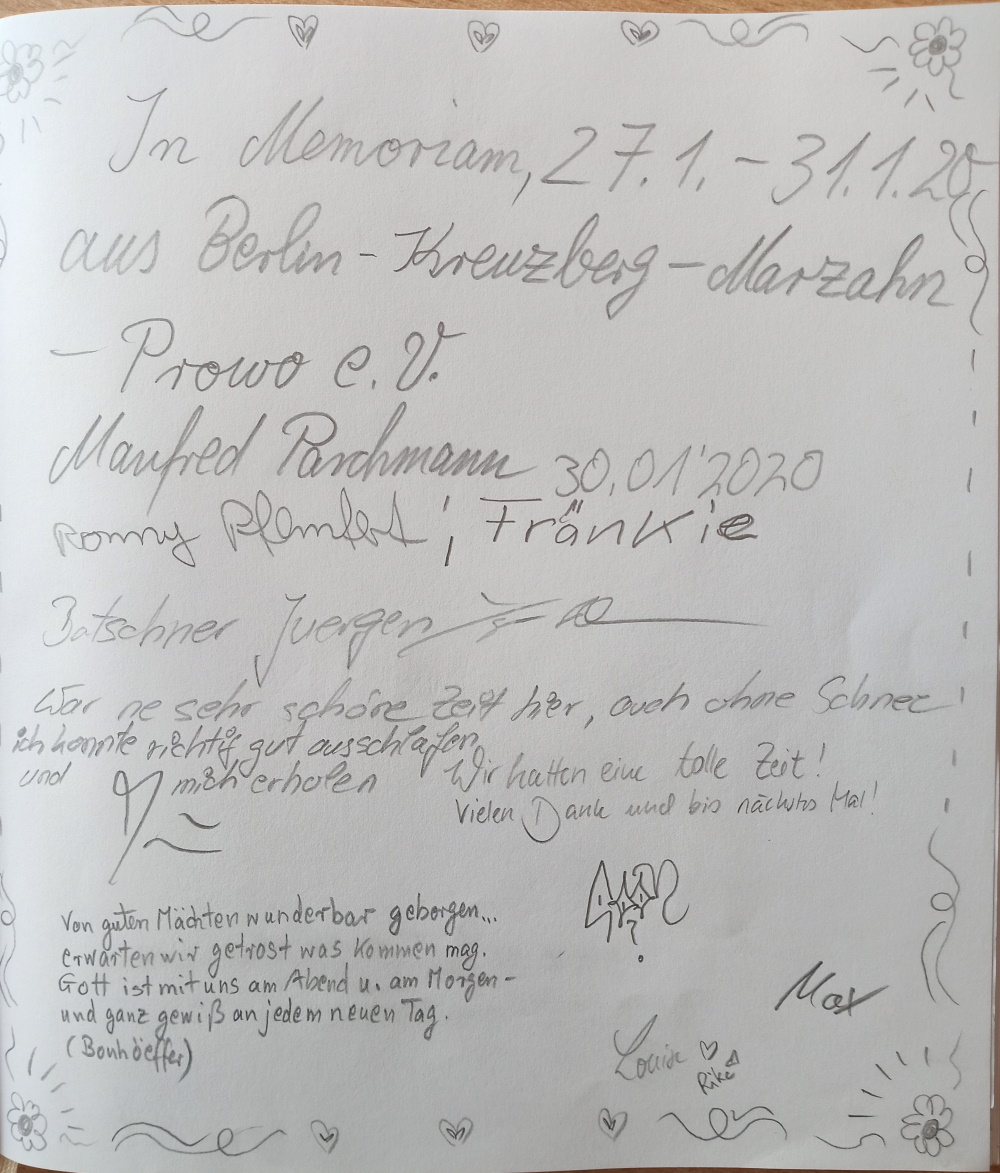 In Memoriam, 27.1. – 31.1.20
aus Berlin - Kreuzberg – Marzahn
– Prowo e.V.
Manfred Parchmann 30.01'2020
Ronny ; Fränkie
Batschner Juergen
War ne sehr schöne Zeit hier, auch ohne Schnee
ich konnte richtig gut ausschlafen
und mich erholen
Wir hatten eine tolle Zeit!
Vielen Dank und bis nächstes Mal!
Von guten Mächten wunderbar geborgen...
erwarten wir getrost was kommen mag.
Gott ist mit uns am Abend u. am Morgen -
und ganz gewiß an jedem neuen Tag.
(Bonhöeffer)
Max
Louise ♡
Rike